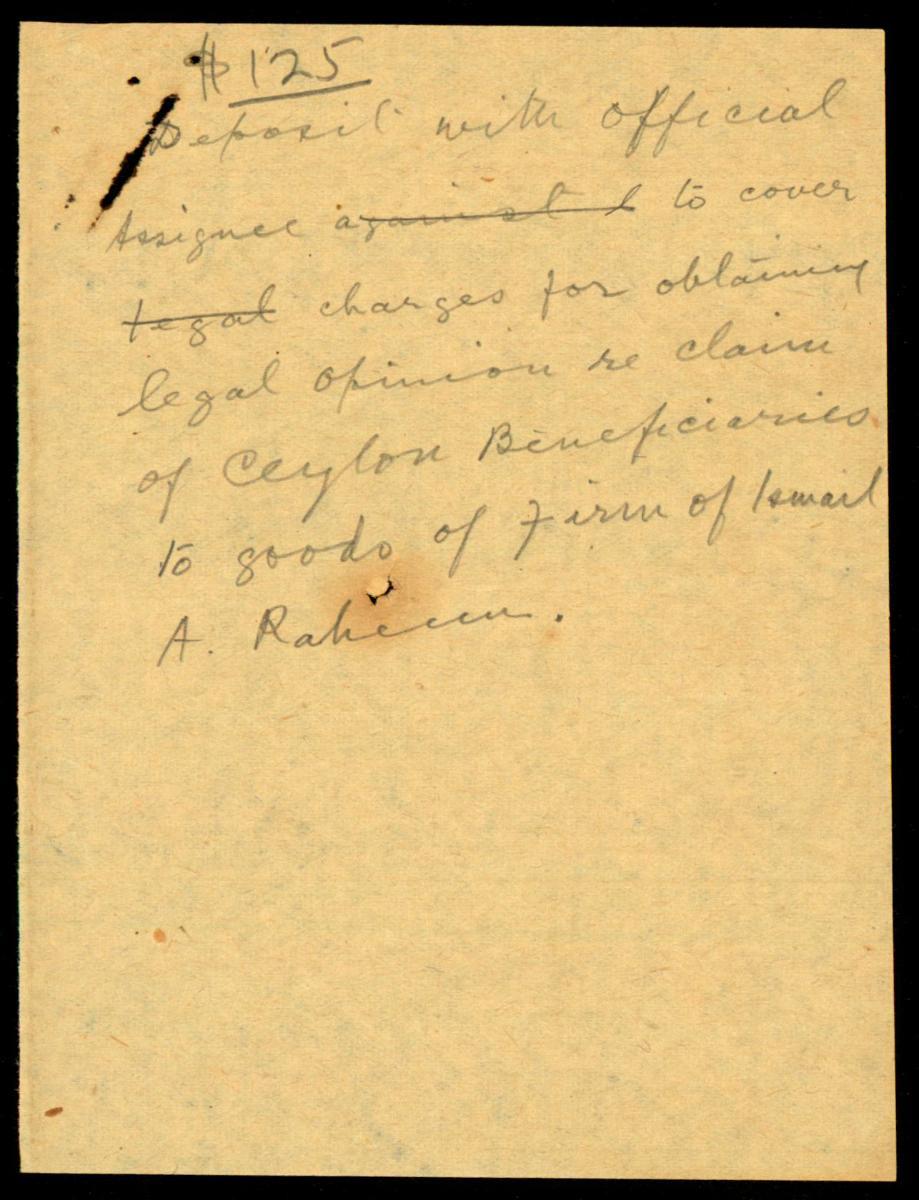 $125
Deposit with official
Assignee against l to cover
legal charges for obtaining
legal opinion re claim
of Ceylon Beneficiaries
to goods of Firm of Ismail
A. Raheem.